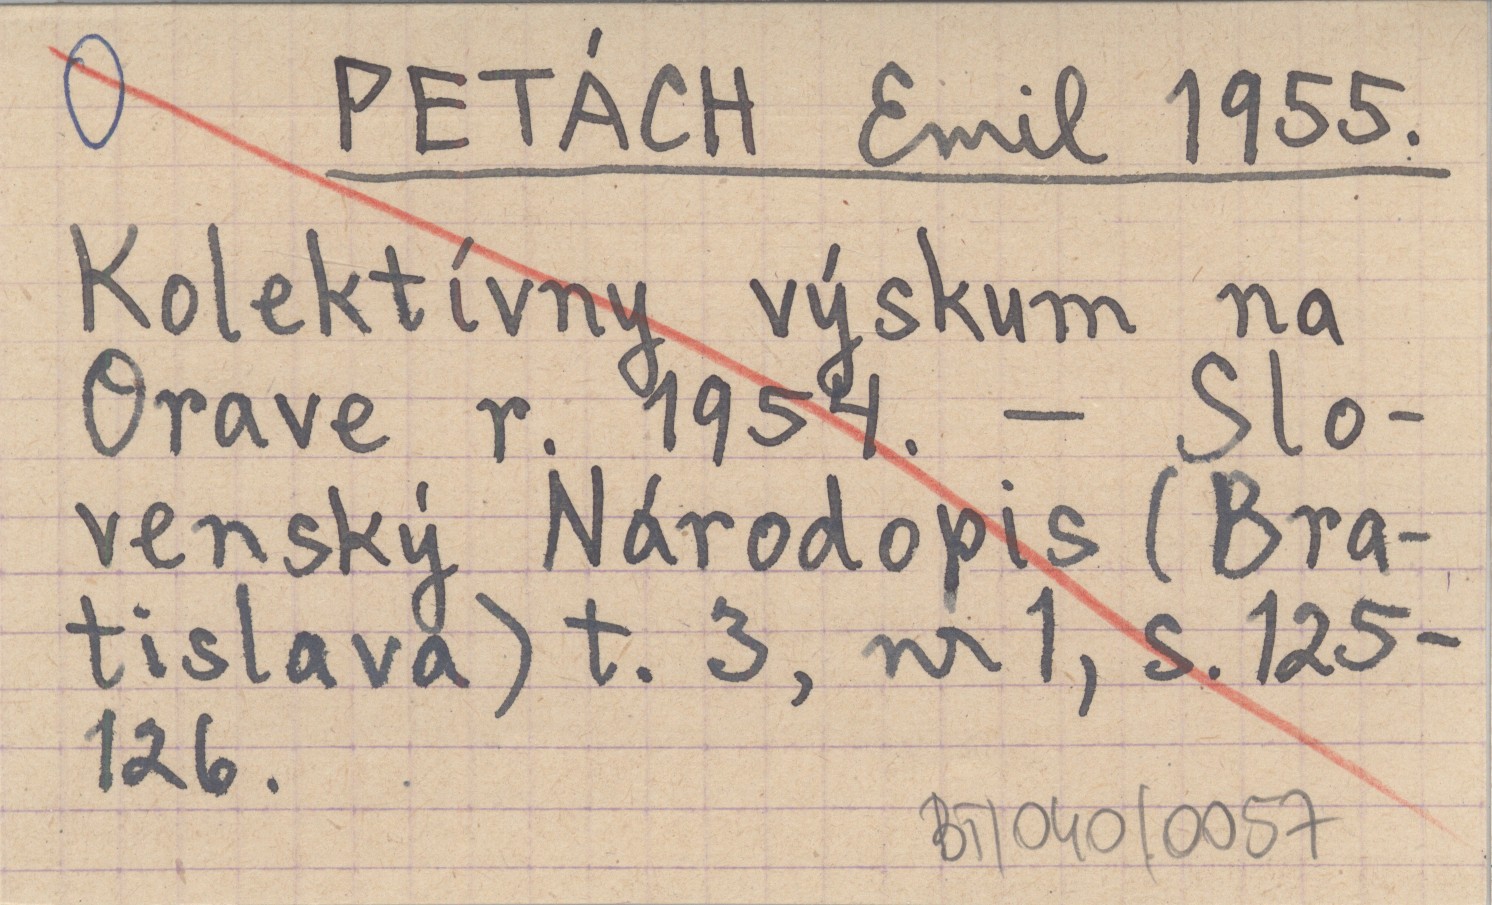 O PETÁCH Emil 1955.
Kolektívny výskum na
Orave r. 1954. — Slo-
venský Národopis (Bra-
tislava) t. 3, nr 1, s. 125-
126.
BT/040/0057